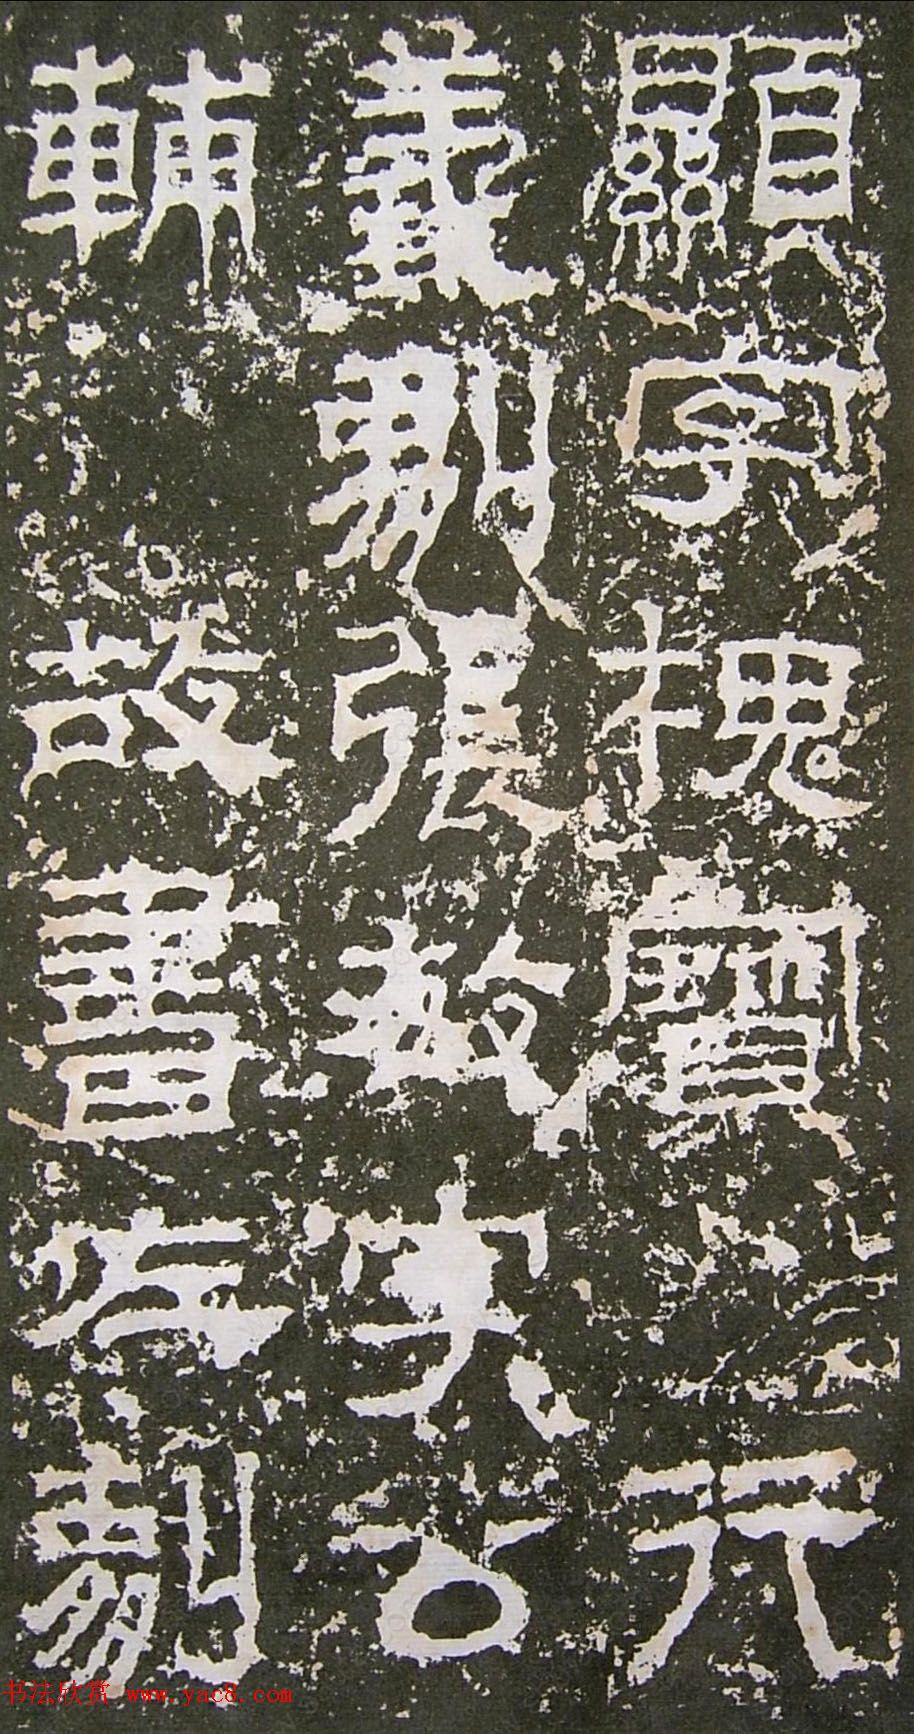 顯字槐寶行
義劇張敏字公
輔故書佐劇
书法欣赏 www.yac8.com